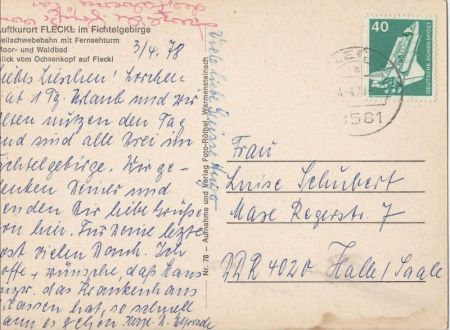 Luftkurort FLECKL im Fichtelgebirge
Seilschwebebahn mit Fernsehturm
Moor- und Waldbad
Blick vom Ochsenkopf auf Fleckl
3/4. 78
Liebes Lieschen! Lorchen
hat 1 Tg. Urlaub und wir
nützen den Tag
und sind alle Drei im
Fichtelgebirge. Wir ge-
denken Deiner und
senden Dir liebe Grüße
von hier. Für Deine letzte
Post vielen Dank. Ich
hoffe + wünsche, daß Hans
das Krankenhaus
verlassen hat, so schnell
kann es gehen. Herzl. G.
Viele liebe Grüsse
Nr. 78 – Aufnahme und Verlag Foto-Röthel, Warmensteinach
40
DEUTSCHE BUNDESPOST
8581
Frau
Luise Schubert
Max Regerstr. 7
DDR 4020 Halle/Saale